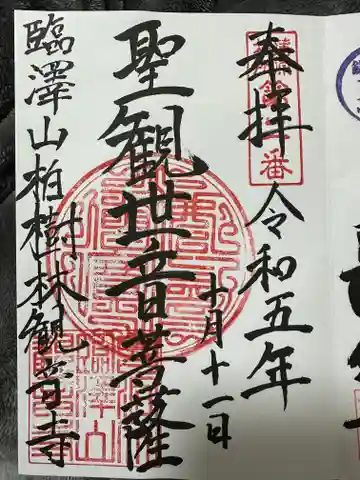 奉拝
令和五年
十月十一日
聖観世音菩薩
臨澤山柏樹林観音寺